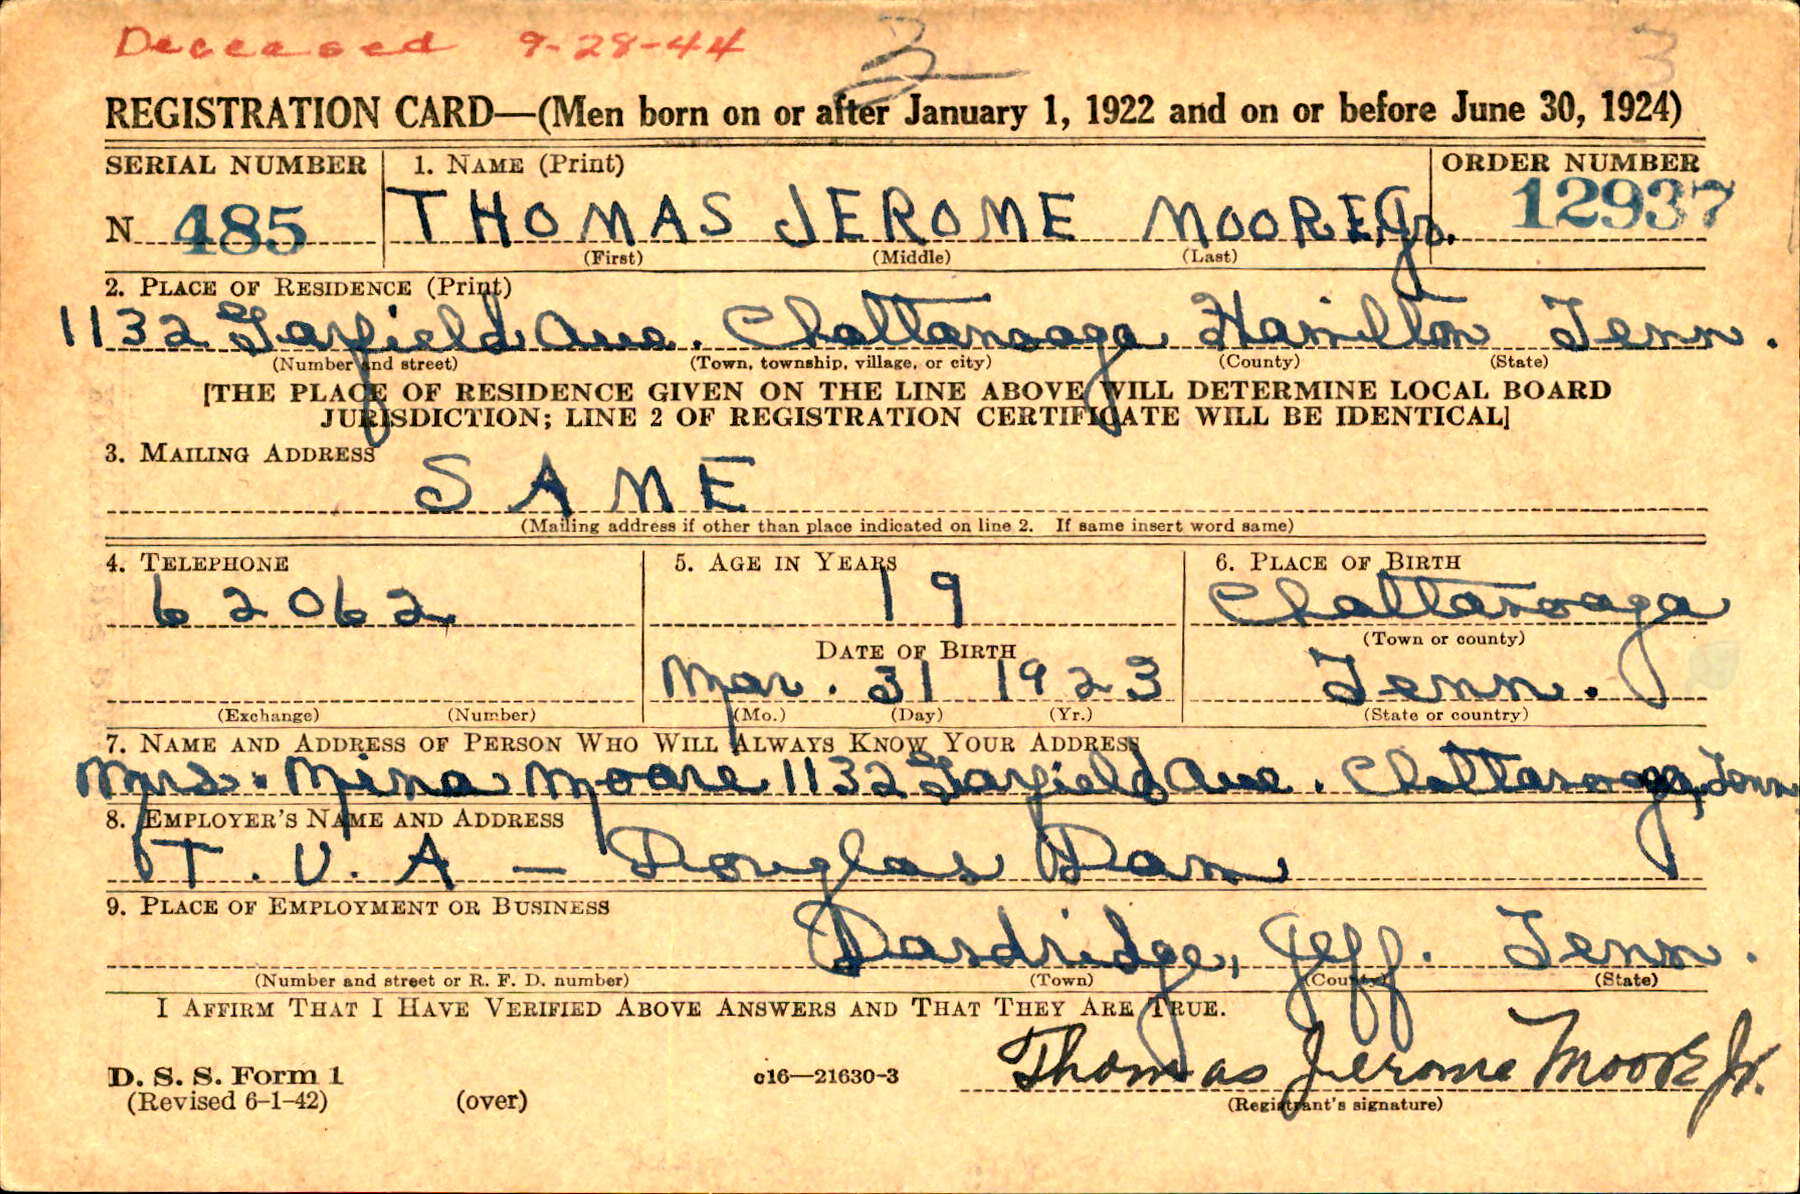 Deceased 9-28-44
3
3
REGISTRATION CARD—(Men born on or after January 1, 1922 and on or before June 30, 1924)
SERIAL NUMBER 1. NAME (Print) ORDER NUMBER
N 485 THOMAS JEROME MOORE, Jr. 12937
(First) (Middle) (Last)
2. PLACE OF RESIDENCE (Print)
1132 Garfield Ave. Chattanooga Hamilton Tenn.
(Number and street) (Town, township, village, or city) (County) (State)
[THE PLACE OF RESIDENCE GIVEN ON THE LINE ABOVE WILL DETERMINE LOCAL BOARD
JURISDICTION; LINE 2 OF REGISTRATION CERTIFICATE WILL BE IDENTICAL]
3. MAILING ADDRESS
SAME
(Mailing address if other than place indicated on line 2. If same insert word same)
4. TELEPHONE 5. AGE IN YEARS 6. PLACE OF BIRTH
62062 19 Chattanooga
(Town or county)
DATE OF BIRTH
Mar. 31 1923 Tenn.
(Exchange) (Number) (Mo.) (Day) (Yr.) (State or country)
7. NAME AND ADDRESS OF PERSON WHO WILL ALWAYS KNOW YOUR ADDRESS
Mrs. Mina Moore 1132 Garfield Ave. Chattanooga, Tenn
8. EMPLOYER'S NAME AND ADDRESS
T.V.A — Douglas Dam
9. PLACE OF EMPLOYMENT OR BUSINESS
Dandridge, Jeff. Tenn.
(Number and street or R. F. D. number) (Town) (County) (State)
I AFFIRM THAT I HAVE VERIFIED ABOVE ANSWERS AND THAT THEY ARE TRUE.
D. S. S. Form 1
(Revised 6-1-42) (over) c16—21630-3 Thomas Jerome Moore Jr.
(Registrant's signature)